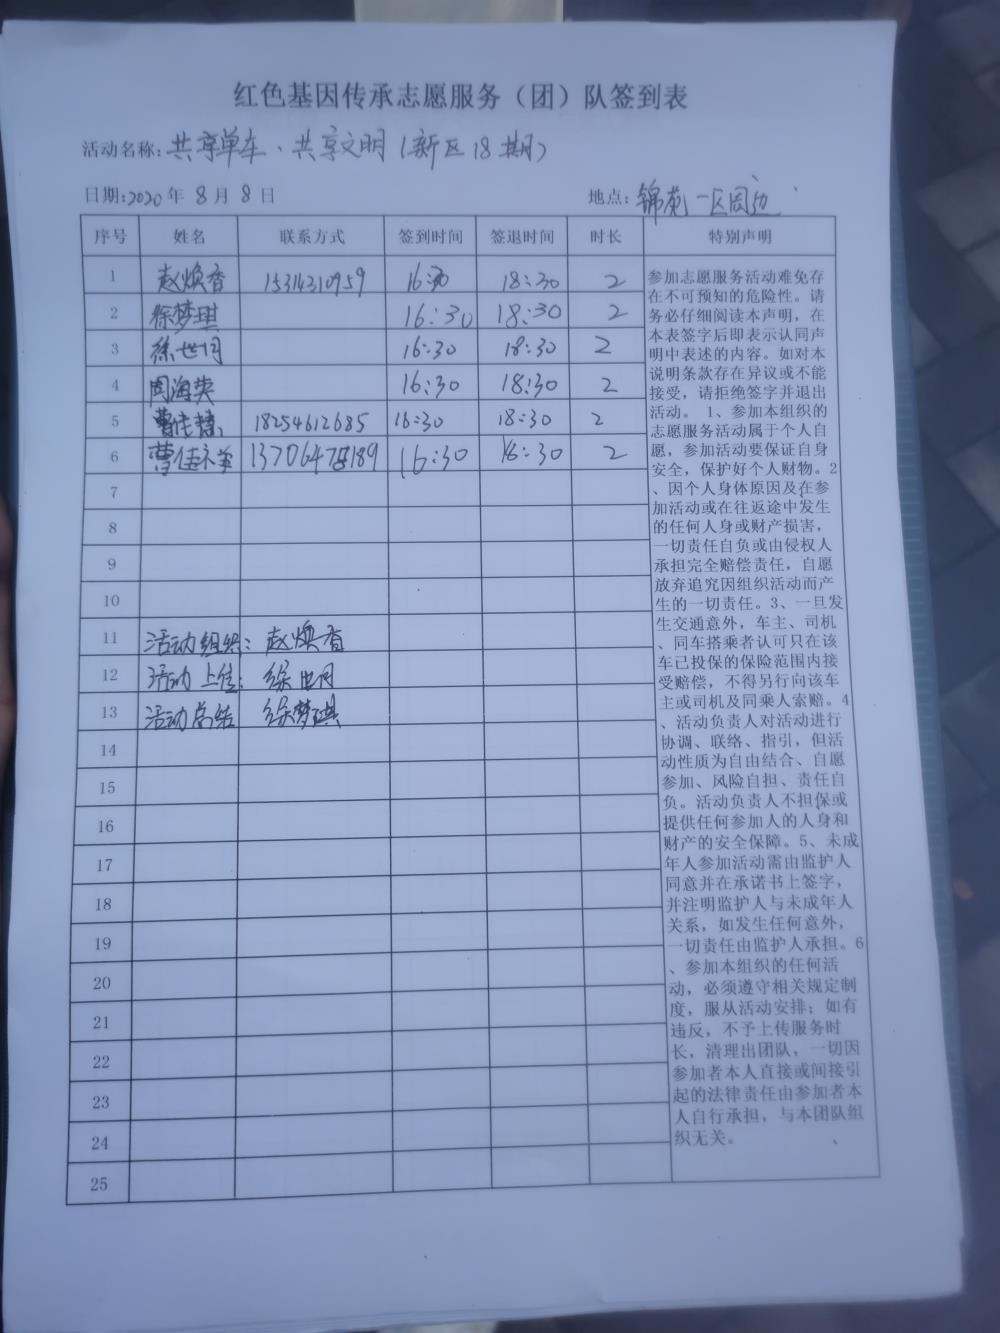 红色基因传承志愿服务（团）队签到表
活动名称:共享单车、共享文明（新区18期）
日期:2020年8月8日 地点:锦苑一区周边
序号 姓名 联系方式 签到时间 签退时间 时长 特别声明
1 赵焕香 15314310959 16:30 18:30 2
2 徐梦琪 16:30 18:30 2
3 徐世同 16:30 18:30 2
4 周海英 16:30 18:30 2
5 18254612685 16:30 18:30 2
6 曹佳 16:30 18:30 2
7
8
9
10
11 活动组织：赵焕香
12 活动上传：徐世同
13 活动总结 徐梦琪
14
15
16
17
18
19
20
21
22
23
24
25
参加志愿服务活动难免存
在不可预知的危险性。请
务必仔细阅读本声明，在
本表签字后即表示认同声
明中表述的内容。如对本
说明条款存在异议或不能
接受，请拒绝签字并退出
活动。 1、参加本组织的
志愿服务活动属于个人自
愿，参加活动要保证自身
安全，保护好个人财物。2
、因个人身体原因及在参
加活动或在往返途中发生
的任何人身或财产损害，
一切责任自负或由侵权人
承担完全赔偿责任，自愿
放弃追究因组织活动而产
生的一切责任。3、一旦发
生交通意外，车主、司机
、同车搭乘者认可只在该
车已投保的保险范围内接
受赔偿，不得另行向该车
主或司机及同乘人索赔。4
、活动负责人对活动进行
协调、联络、指引，但活
动性质为自由结合、自愿
参加、风险自担、责任自
负。活动负责人不担保或
提供任何参加人的人身和
财产的安全保障。5、未成
年人参加活动需由监护人
同意并在承诺书上签字，
并注明监护人与未成年人
关系，如发生任何意外，
一切责任由监护人承担。6
、参加本组织的任何活
动，必须遵守相关规定制
度，服从活动安排；如有
违反，不予上传服务时
长，清理出团队，一切因
参加者本人直接或间接引
起的法律责任由参加者本
人自行承担，与本团队组
织无关。